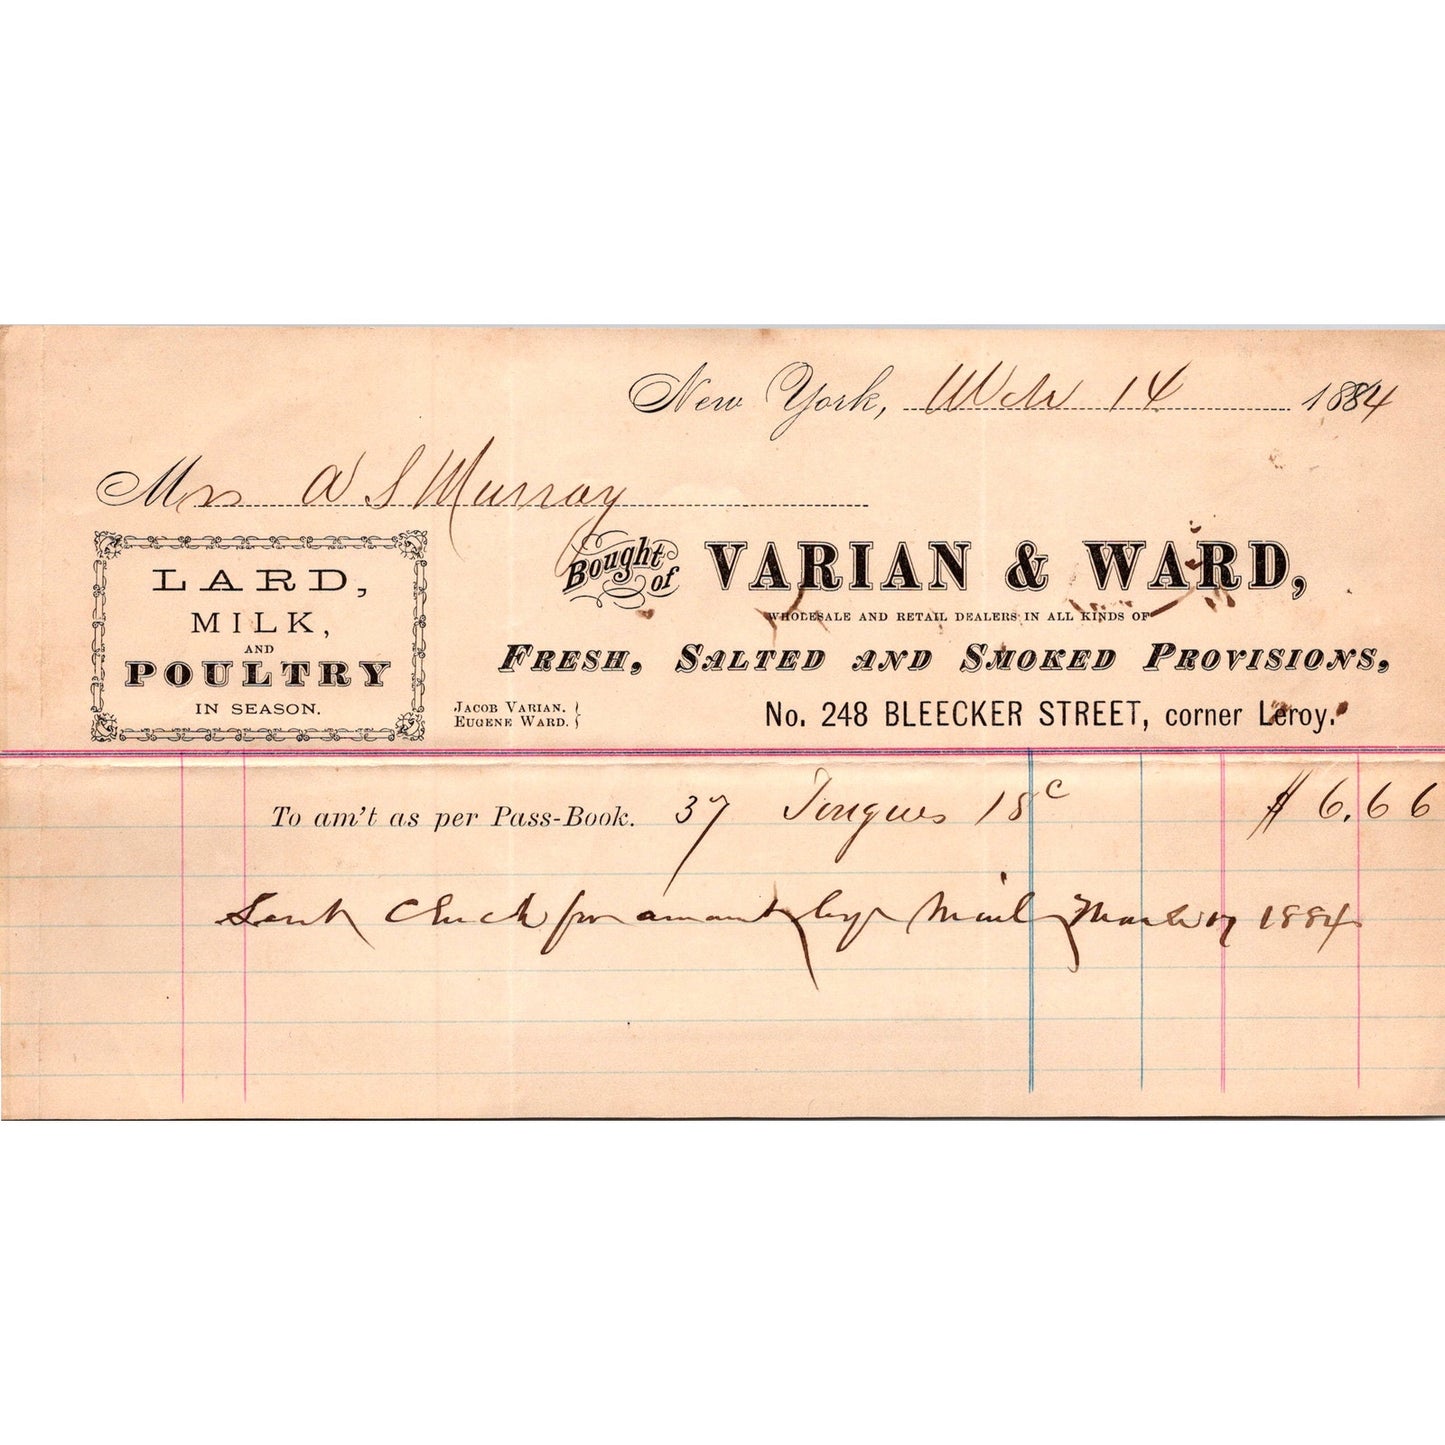 New York, Mch 14 1884
Mrs A S Murray
LARD,
MILK,
AND
POULTRY
IN SEASON.
Bought of VARIAN & WARD,
WHOLESALE AND RETAIL DEALERS IN ALL KINDS OF
FRESH, SALTED AND SMOKED PROVISIONS,
JACOB VARIAN.
EUGENE WARD.
No. 248 BLEECKER STREET, corner Leroy.
To am't as per Pass-Book. 37 Tongues 18c $6.66
Sent Check for amount by Mail March 17 1884